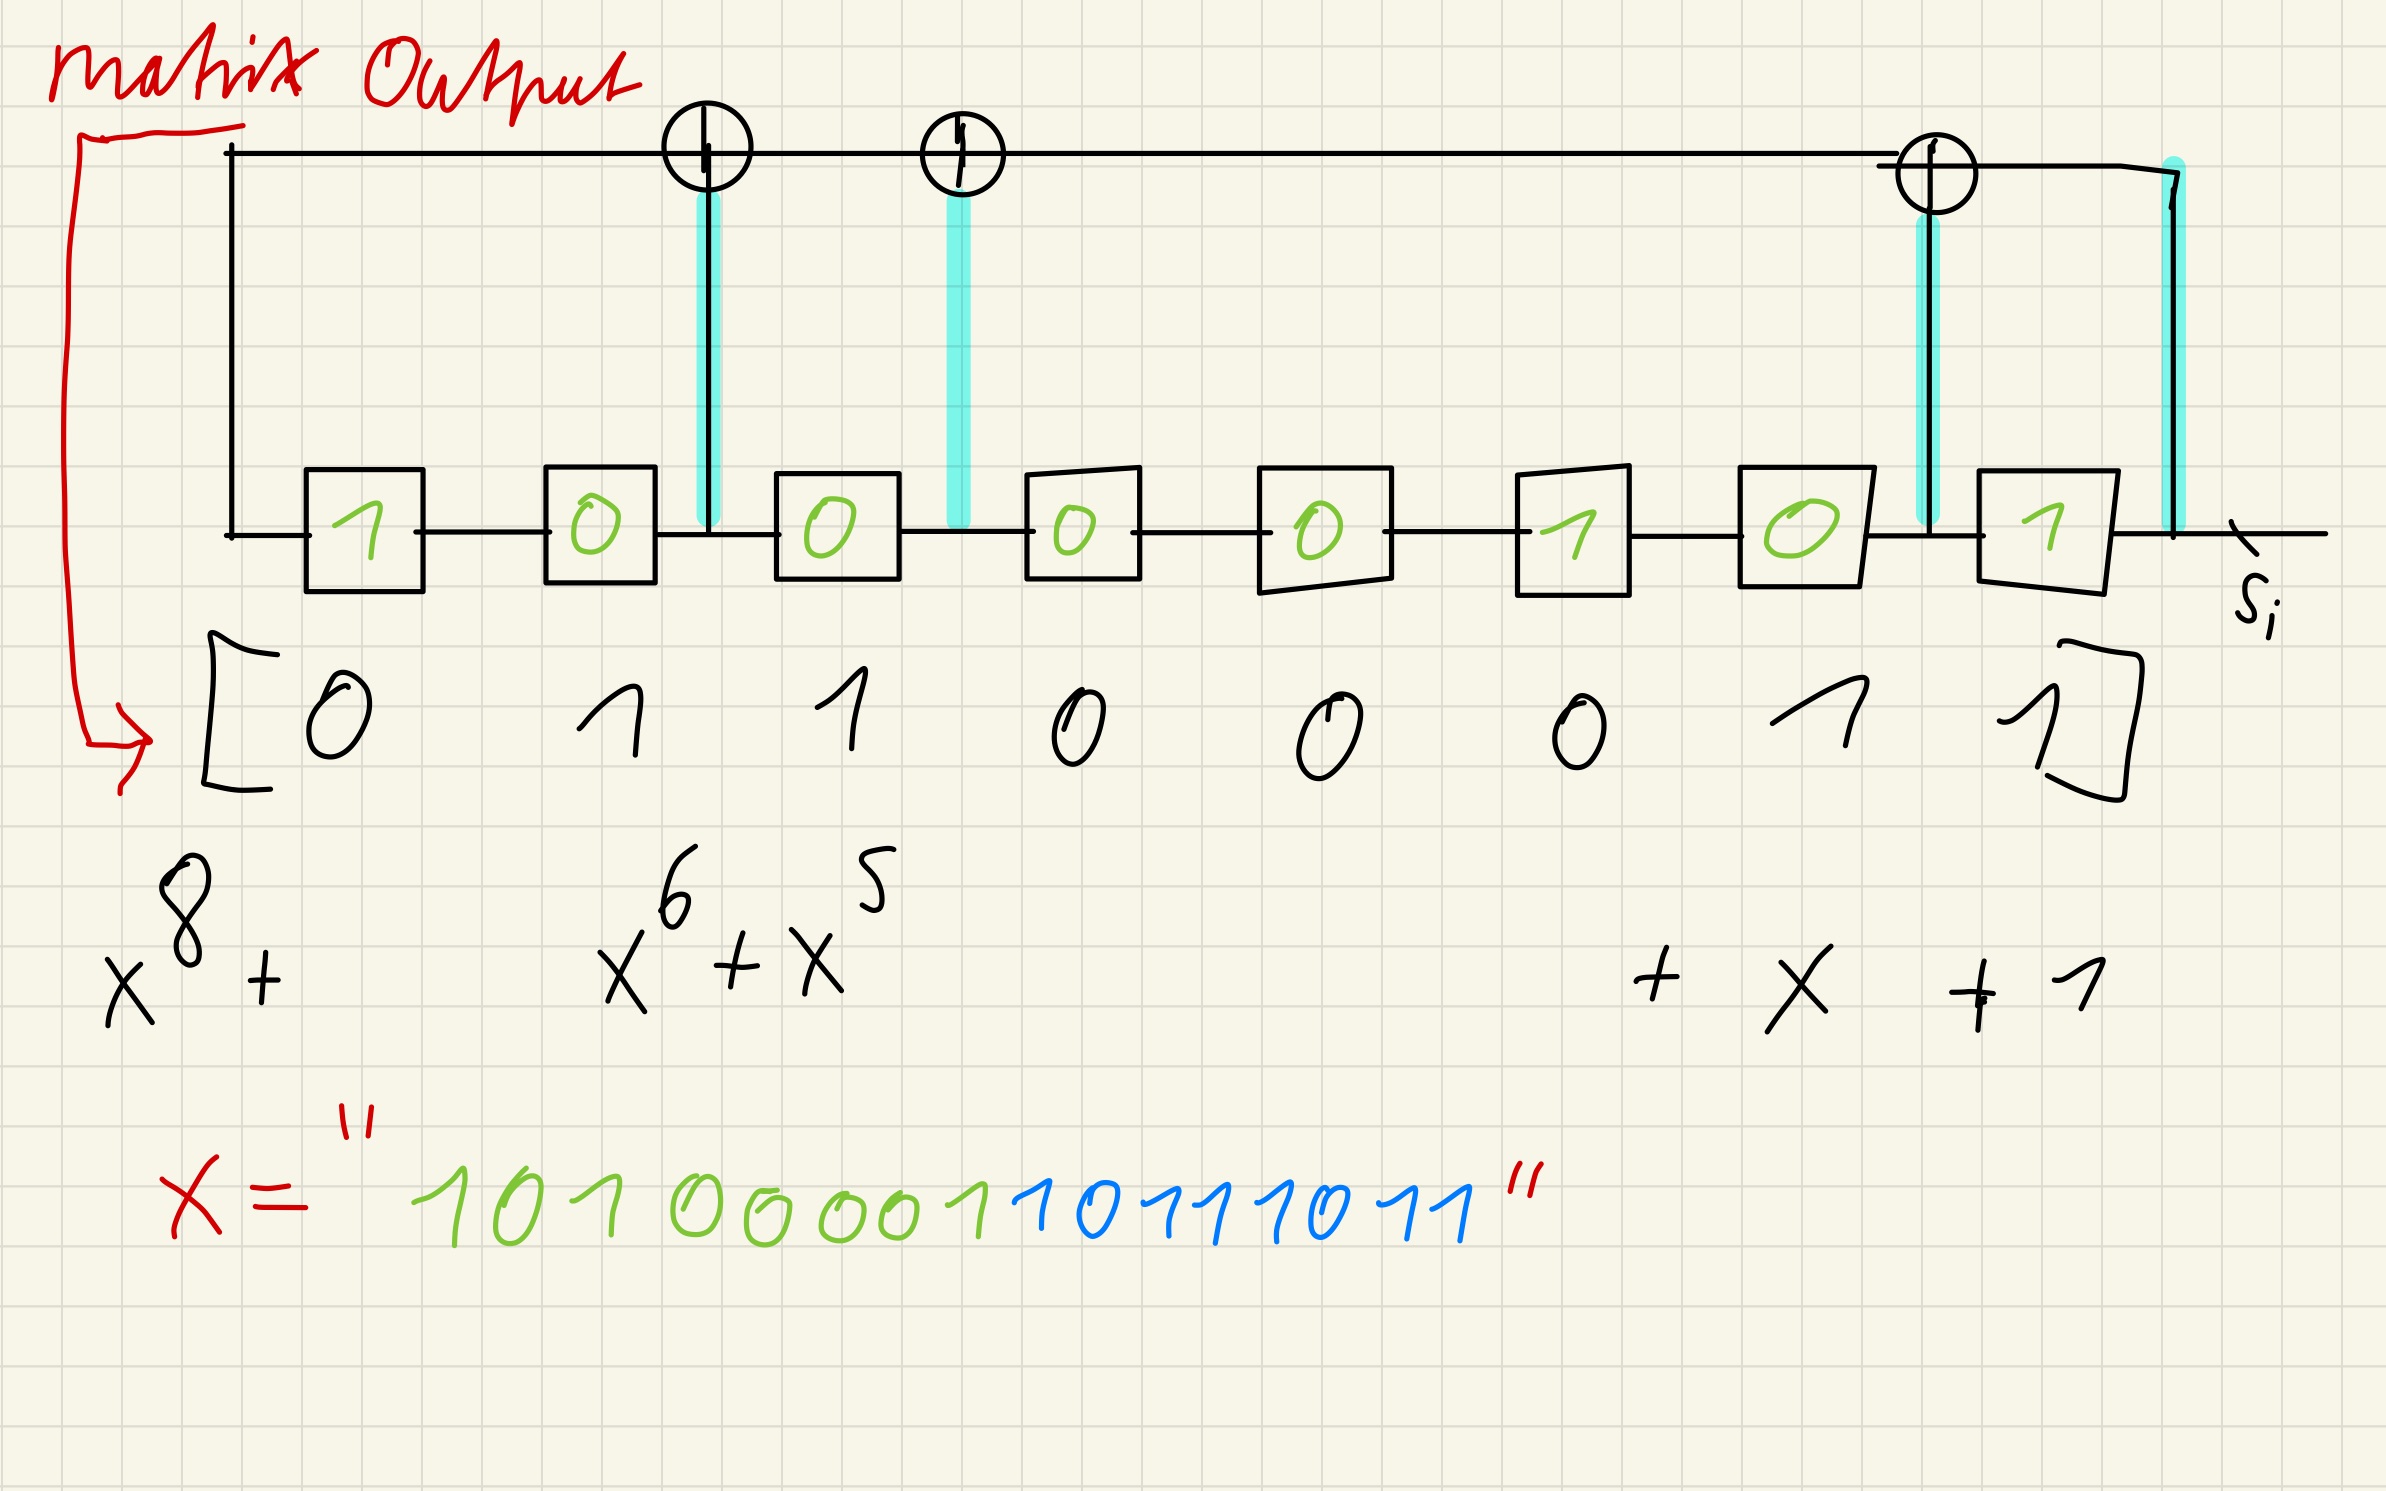 matrix Output
1 0 0 0 0 1 0 1
Si
[0 1 1 0 0 0 1 1]
x⁸ + x⁶ + x⁵ + x + 1
X = "1010000110111011"